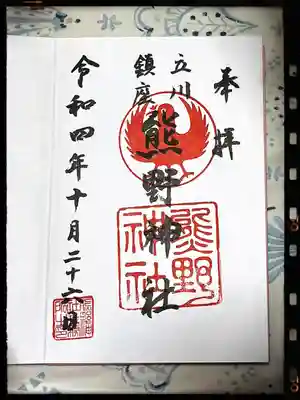 奉拝
立川
鎮座
熊野神社
熊野
神社
令和四年十月二十六日